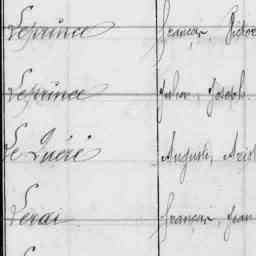 Leprince François, Victor
Leprince Jules, Joseph
Le Quéré Auguste, Arist
Lerai François, Jean